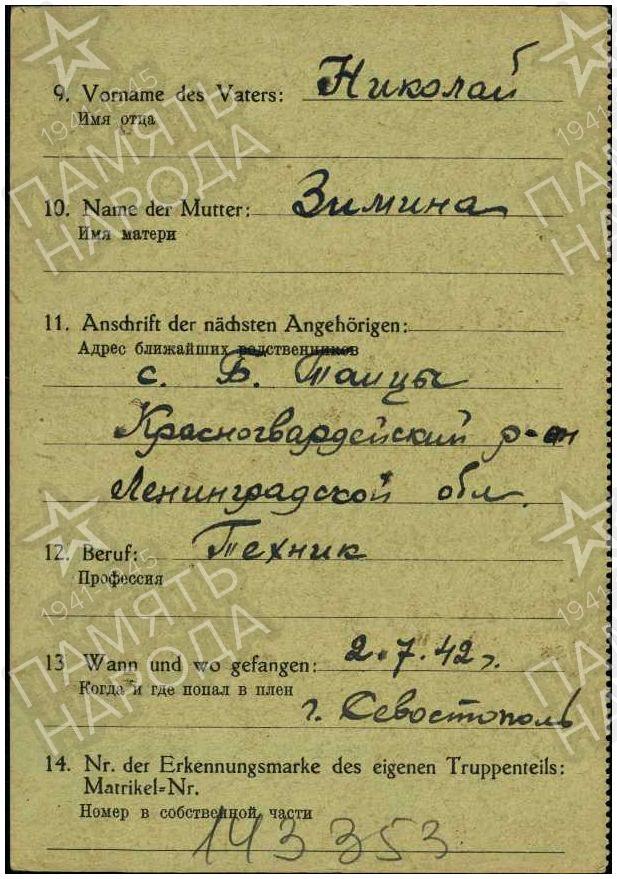 9. Vorname des Vaters: Николай
Имя отца
10. Name der Mutter: Зимина
Имя матери
11. Anschrift der nächsten Angehörigen:
Адрес ближайших родственников
с. Б. Таицы
Красногвардейский р-он
Ленинградской обл.
12. Beruf: Техник
Профессия
13. Wann und wo gefangen: 2.7.42 г.
Когда и где попал в плен
г. Севостополь
14. Nr. der Erkennungsmarke des eigenen Truppenteils:
Matrikel-Nr.
Номер в собственной части
143353
1941-1945
ПАМЯТЬ
НАРОДА